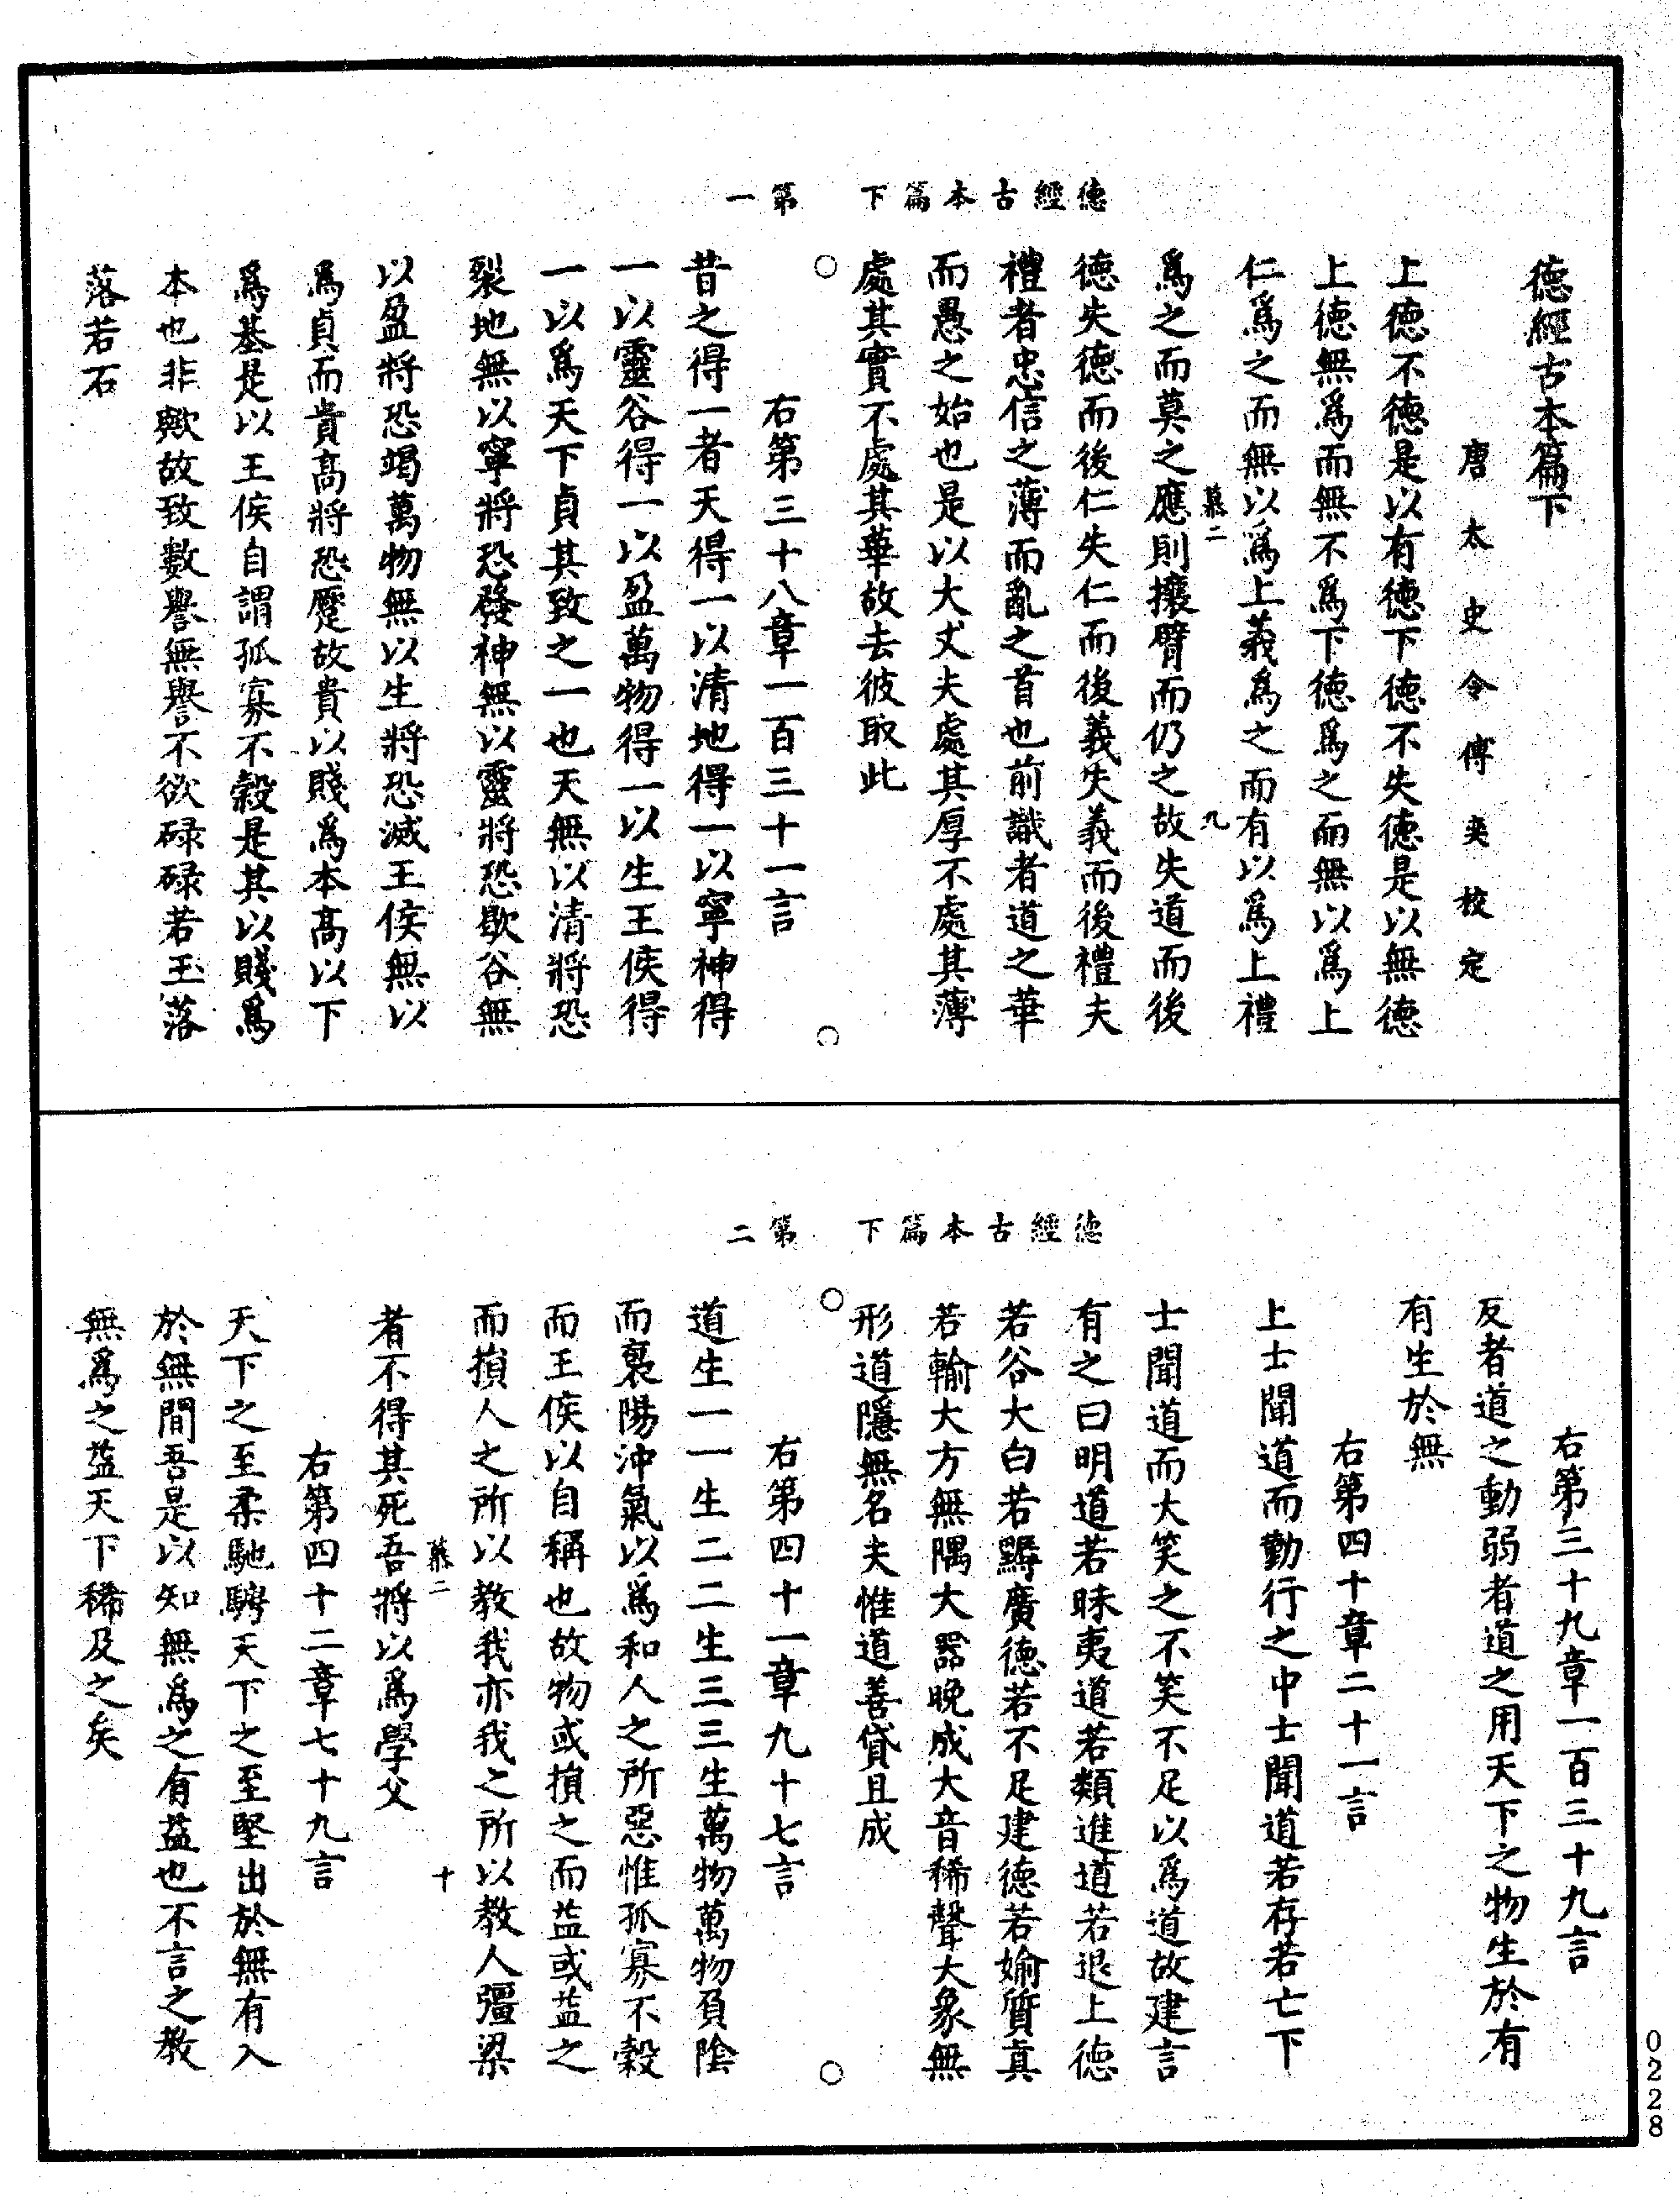 德經古本篇下　第一
德經古本篇下
唐太史令傅奕校定
上德不德是以有德下德不失德是以無德
上德無爲而無不爲下德爲之而無以爲上
仁爲之而無以爲上義爲之而有以爲上禮
慕二　九
爲之而莫之應則攘臂而仍之故失道而後
德失德而後仁失仁而後義失義而後禮夫
禮者忠信之薄而亂之首也前識者道之華
而愚之始也是以大丈夫處其厚不處其薄
處其實不處其華故去彼取此
右第三十八章一百三十一言
昔之得一者天得一以清地得一以寧神得
一以靈谷得一以盈萬物得一以生王侯得
一以爲天下貞其致之一也天無以清將恐
裂地無以寧將恐發神無以靈將恐歇谷無
以盈將恐竭萬物無以生將恐滅王侯無以
爲貞而貴高將恐蹷故貴以賤爲本高以下
爲基是以王侯自謂孤寡不榖是其以賤爲
本也非歟故致數譽無譽不欲碌碌若玉落
落若石
德經古本篇下　第二
右第三十九章一百三十九言
反者道之動弱者道之用天下之物生於有
有生於無
右第四十章二十一言
上士聞道而勤行之中士聞道若存若亡下
士聞道而大笑之不笑不足以爲道故建言
有之曰明道若昧夷道若類進道若退上德
若谷大白若䵰廣德若不足建德若媮質真
若輸大方無隅大器晚成大音稀聲大象無
形道隱無名夫惟道善貸且成
右第四十一章九十七言
道生一一生二二生三三生萬物萬物負陰
而裦陽沖氣以爲和人之所惡惟孤寡不榖
而王侯以自稱也故物或損之而益或益之
而損人之所以教我亦我之所以教人彊梁
慕二　十
者不得其死吾將以爲學父
右第四十二章七十九言
天下之至柔馳騁天下之至堅出於無有入
於無間吾是以知無爲之有益也不言之教
無爲之益天下稀及之矣
0228